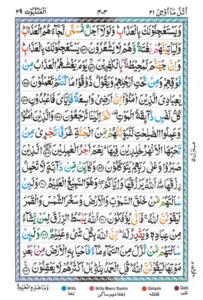 اُتْلُ مَآ اُوْحِيَ ٢١
الْعَنْكَبُوْت ٢٩
وَيَسْتَعْجِلُوْنَكَ بِالْعَذَابِ وَلَوْلَآ اَجَلٌ مُّسَمًّى لَّجَآءَهُمُ الْعَذَابُ
وَلَيَاْتِيَنَّهُمْ بَغْتَةً وَّهُمْ لَا يَشْعُرُوْنَ يَسْتَعْجِلُوْنَكَ بِالْعَذَابِ
وَاِنَّ جَهَنَّمَ لَمُحِيْطَةٌ بِالْكٰفِرِيْنَ يَوْمَ يَغْشٰىهُمُ الْعَذَابُ مِنْ
فَوْقِهِمْ وَمِنْ تَحْتِ اَرْجُلِهِمْ وَيَقُوْلُ ذُوْقُوْا مَا كُنْتُمْ تَعْمَلُوْنَ
يٰعِبَادِيَ الَّذِيْنَ اٰمَنُوْٓا اِنَّ اَرْضِيْ وَاسِعَةٌ فَاِيَّايَ فَاعْبُدُوْنِ
كُلُّ نَفْسٍ ذَآئِقَةُ الْمَوْتِ ثُمَّ اِلَيْنَا تُرْجَعُوْنَ وَالَّذِيْنَ اٰمَنُوْا
وَعَمِلُوا الصّٰلِحٰتِ لَنُبَوِّئَنَّهُمْ مِّنَ الْجَنَّةِ غُرَفًا تَجْرِيْ مِنْ
تَحْتِهَا الْاَنْهٰرُ خٰلِدِيْنَ فِيْهَا نِعْمَ اَجْرُ الْعٰمِلِيْنَ الَّذِيْنَ
صَبَرُوْا وَعَلٰى رَبِّهِمْ يَتَوَكَّلُوْنَ وَكَاَيِّنْ مِّنْ دَآبَّةٍ لَّا تَحْمِلُ
رِزْقَهَا اَللّٰهُ يَرْزُقُهَا وَاِيَّاكُمْ وَهُوَ السَّمِيْعُ الْعَلِيْمُ وَلَئِنْ
سَاَلْتَهُمْ مَّنْ خَلَقَ السَّمٰوٰتِ وَالْاَرْضَ وَسَخَّرَ الشَّمْسَ وَالْقَمَرَ
لَيَقُوْلُنَّ اللّٰهُ فَاَنّٰى يُؤْفَكُوْنَ اَللّٰهُ يَبْسُطُ الرِّزْقَ لِمَنْ يَّشَآءُ
مِنْ عِبَادِهٖ وَيَقْدِرُ لَهٗ اِنَّ اللّٰهَ بِكُلِّ شَيْءٍ عَلِيْمٌ وَلَئِنْ
سَاَلْتَهُمْ مَّنْ نَّزَّلَ مِنَ السَّمَآءِ مَآءً فَاَحْيَا بِهِ الْاَرْضَ مِنْ بَعْدِ
مَوْتِهَا لَيَقُوْلُنَّ اللّٰهُ قُلِ الْحَمْدُ لِلّٰهِ بَلْ اَكْثَرُهُمْ لَا يَعْقِلُوْنَ
وَمَا هٰذِهِ الْحَيٰوةُ
Ikhfa Meem Saakin Qalqala Qalb